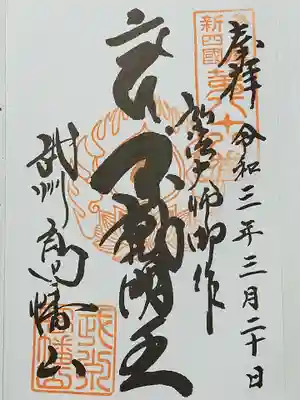 奉拝 令和三年三月二十日
新四國
弘法大師御作
不動明王
武州 高幡山